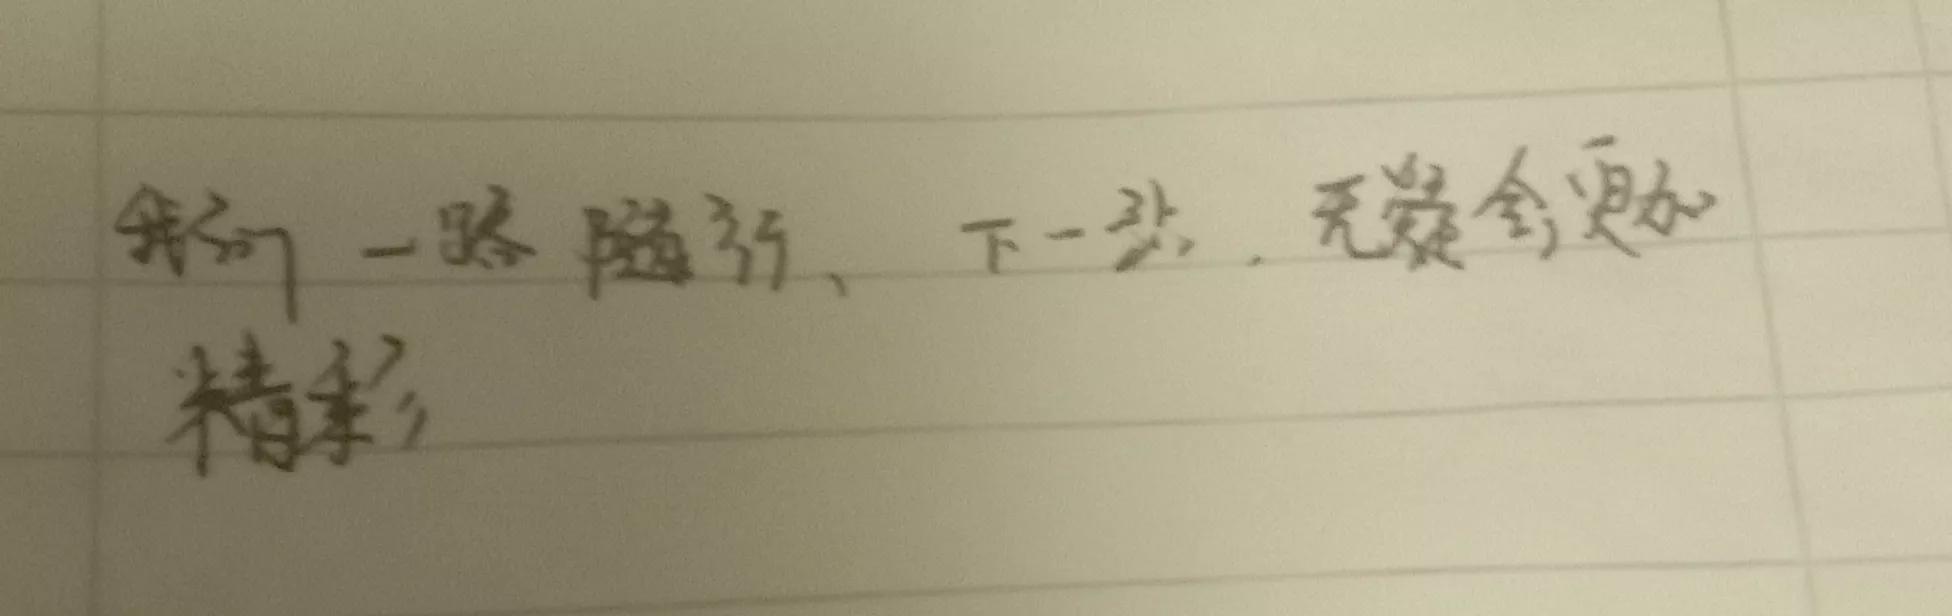 我们一路随行、下一步.无疑会更加
精彩